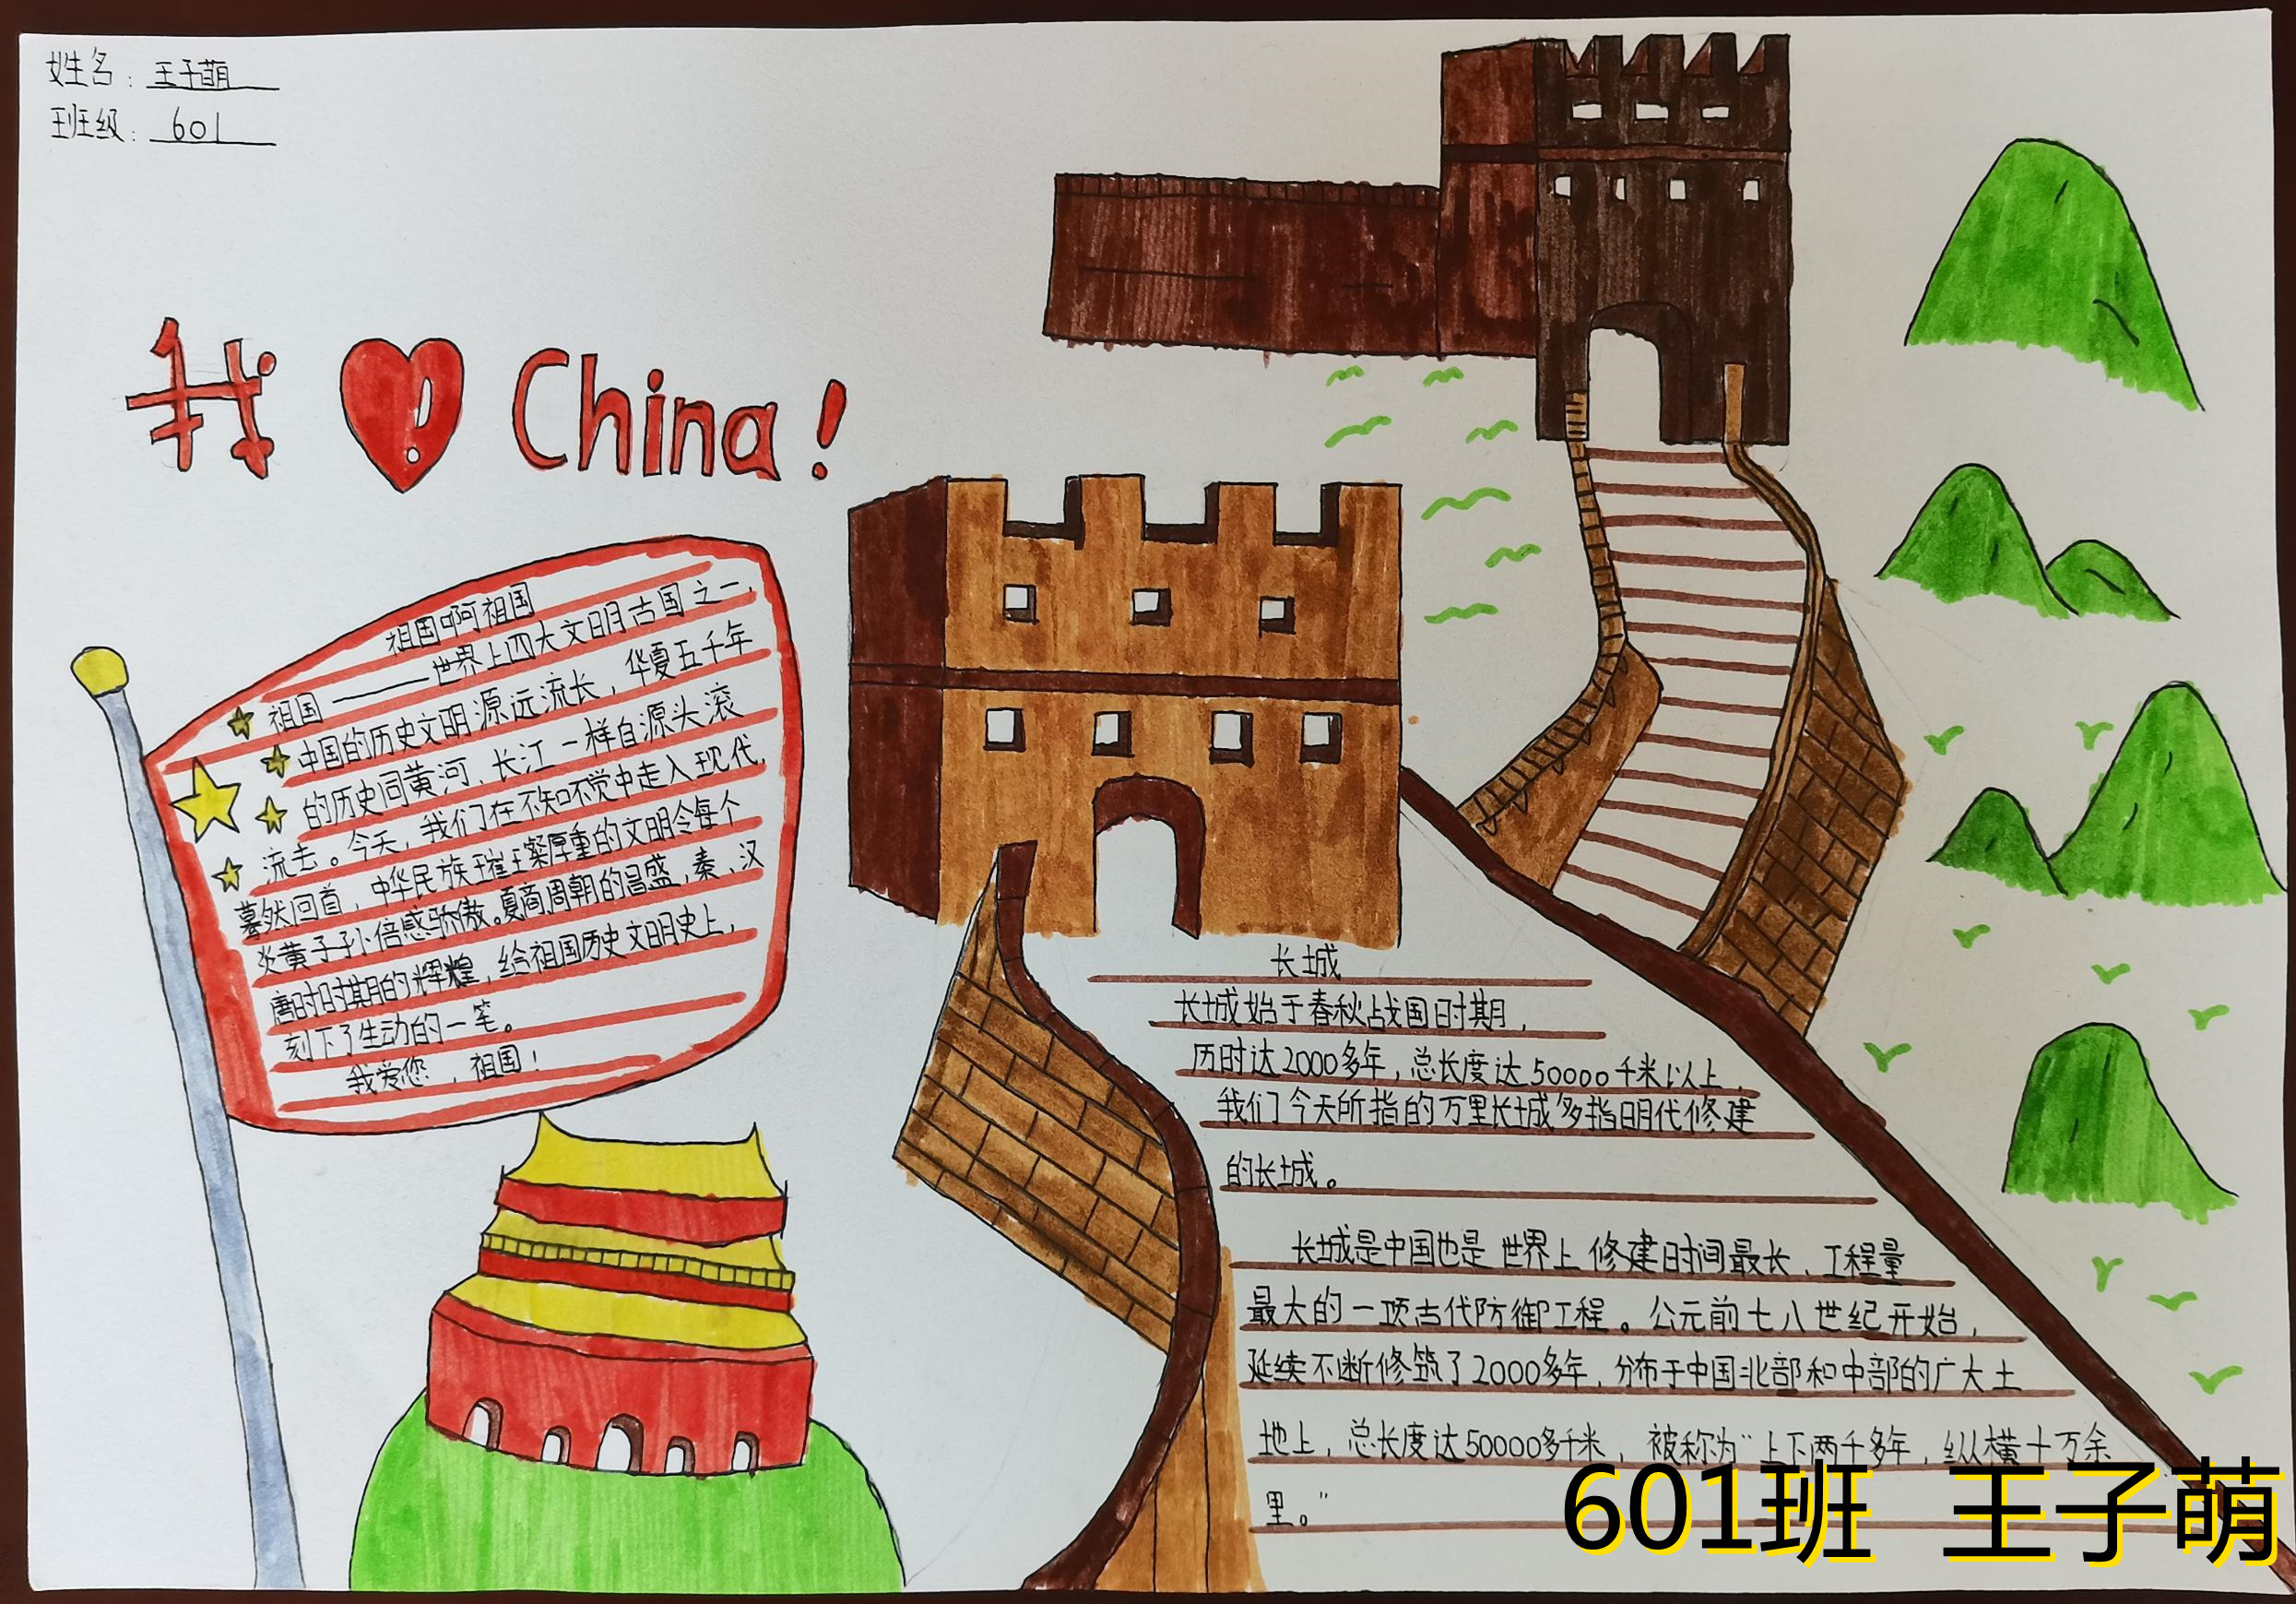 姓名：王子萌
班级：601
我 China！
祖国啊祖国
祖国——世界上四大文明古国之一，
中国的历史文明源远流长，华夏五千年
的历史同黄河、长江一样自源头滚
流去。今天，我们在不知不觉中走入现代，
蓦然回首，中华民族璀璨厚重的文明令每个
炎黄子孙倍感骄傲。夏商周朝的昌盛，秦、汉
唐时时期的辉煌，给祖国历史文明史上，
刻下了生动的一笔。
我爱您，祖国！
长城
长城始于春秋战国时期，
历时达2000多年，总长度达50000千米以上，
我们今天所指的万里长城多指明代修建
的长城。
长城是中国也是世界上修建时间最长、工程量
最大的一项古代防御工程。公元前七八世纪开始，
延续不断修筑了2000多年，分布于中国北部和中部的广大土
地上，总长度达50000多千米，被称为“上下两千多年，纵横十万余
里。”
601班 王子萌